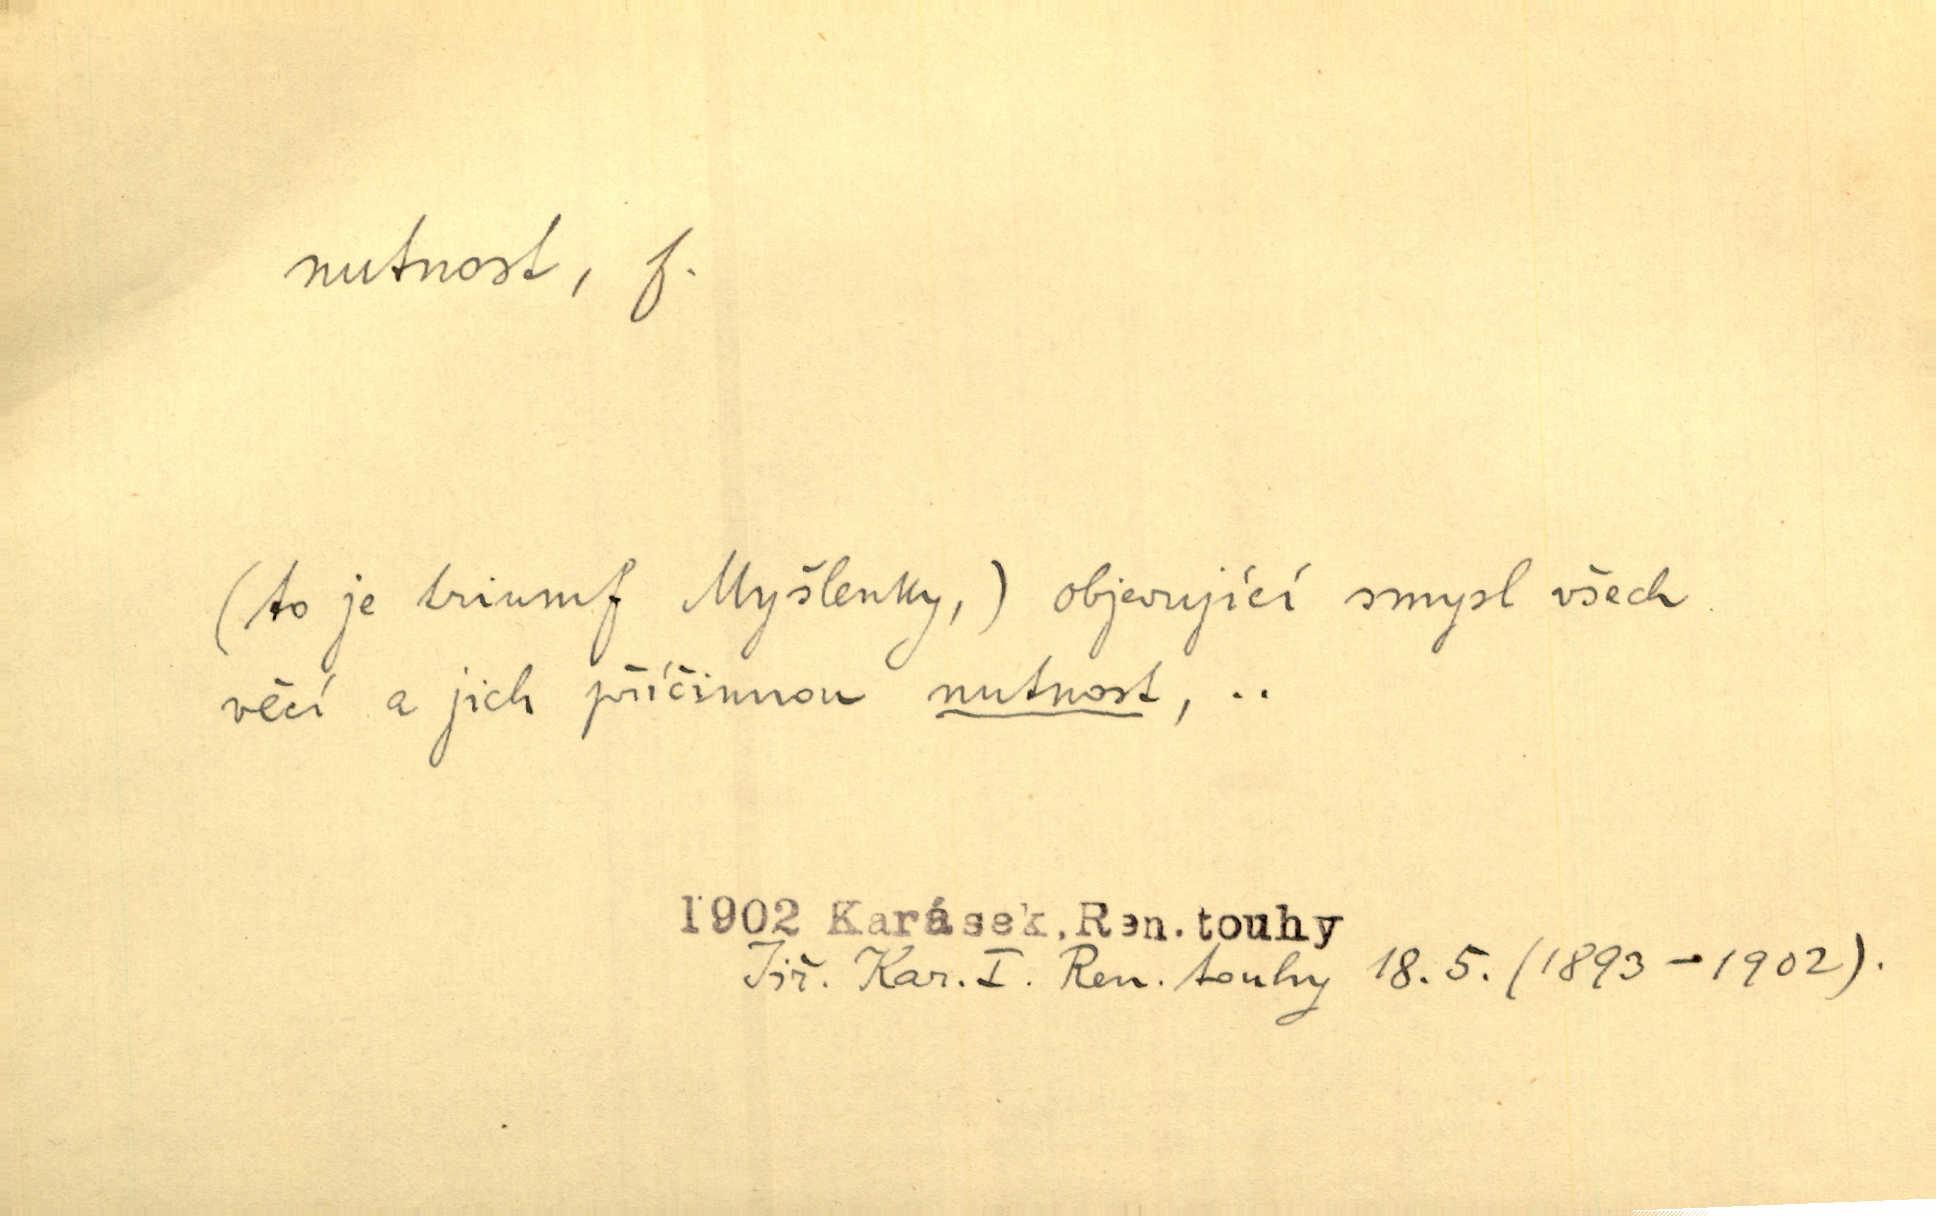 nutnost, f.
(to je triumf Myšlenky,) objevující smysl všech
věcí a jich příčinnou nutnost, ..
1902 Karásek,Ren.touhy
Jiř. Kar. I. Ren. touhy 18. 5. (1893 - 1902).